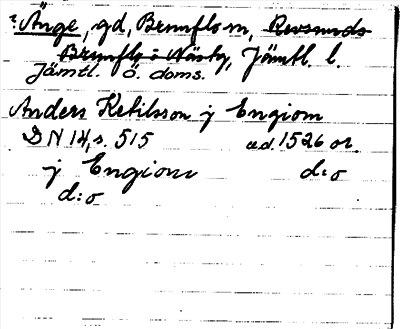 ? Änge, gd, Brunflo sn, Revsunds
Brunflo o Näsby, Jämtl. l.
Jämtl. ö. doms.
Anders Ketilsson j Engiom
DN 14, s. 515 a.d. 1526 or.
j Engiom d:o
d:o